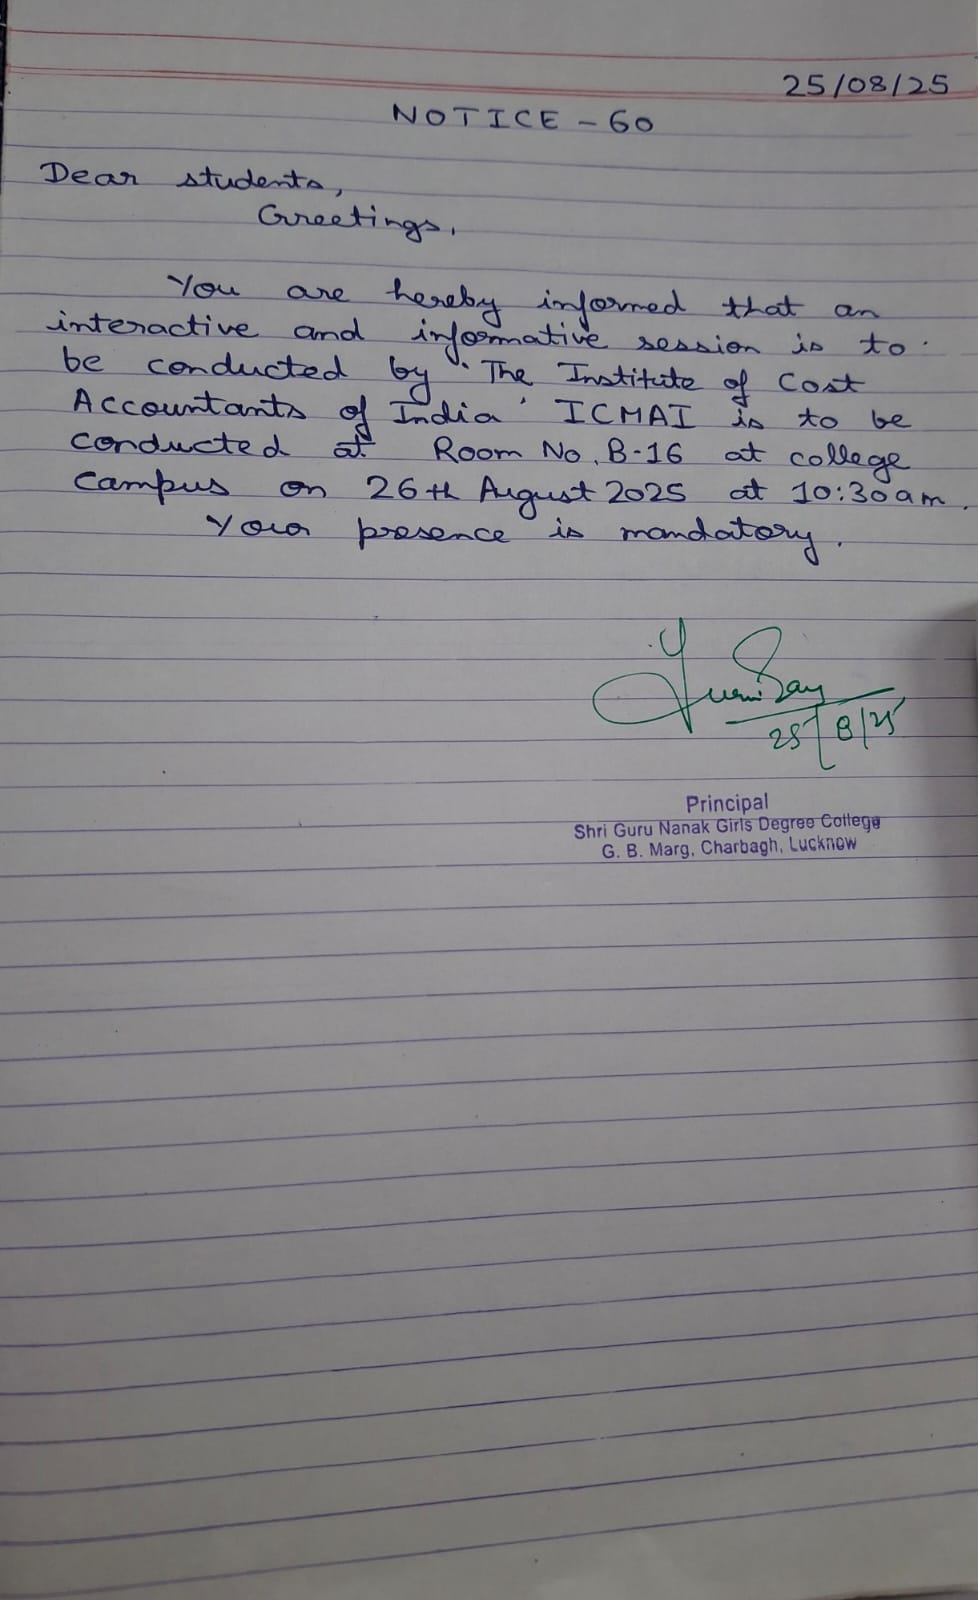 25/08/25
NOTICE - 60
Dear students,
Greetings,
You are hereby informed that an
interactive and informative session is to
be conducted by 'The Institute of Cost
Accountants of India' ICMAI is to be
conducted at Room No. B-16 at college
campus on 26th August 2025 at 10:30am.
Your presence is mandatory.
25/8/25
Principal
Shri Guru Nanak Girls Degree College
G. B. Marg, Charbagh, Lucknow